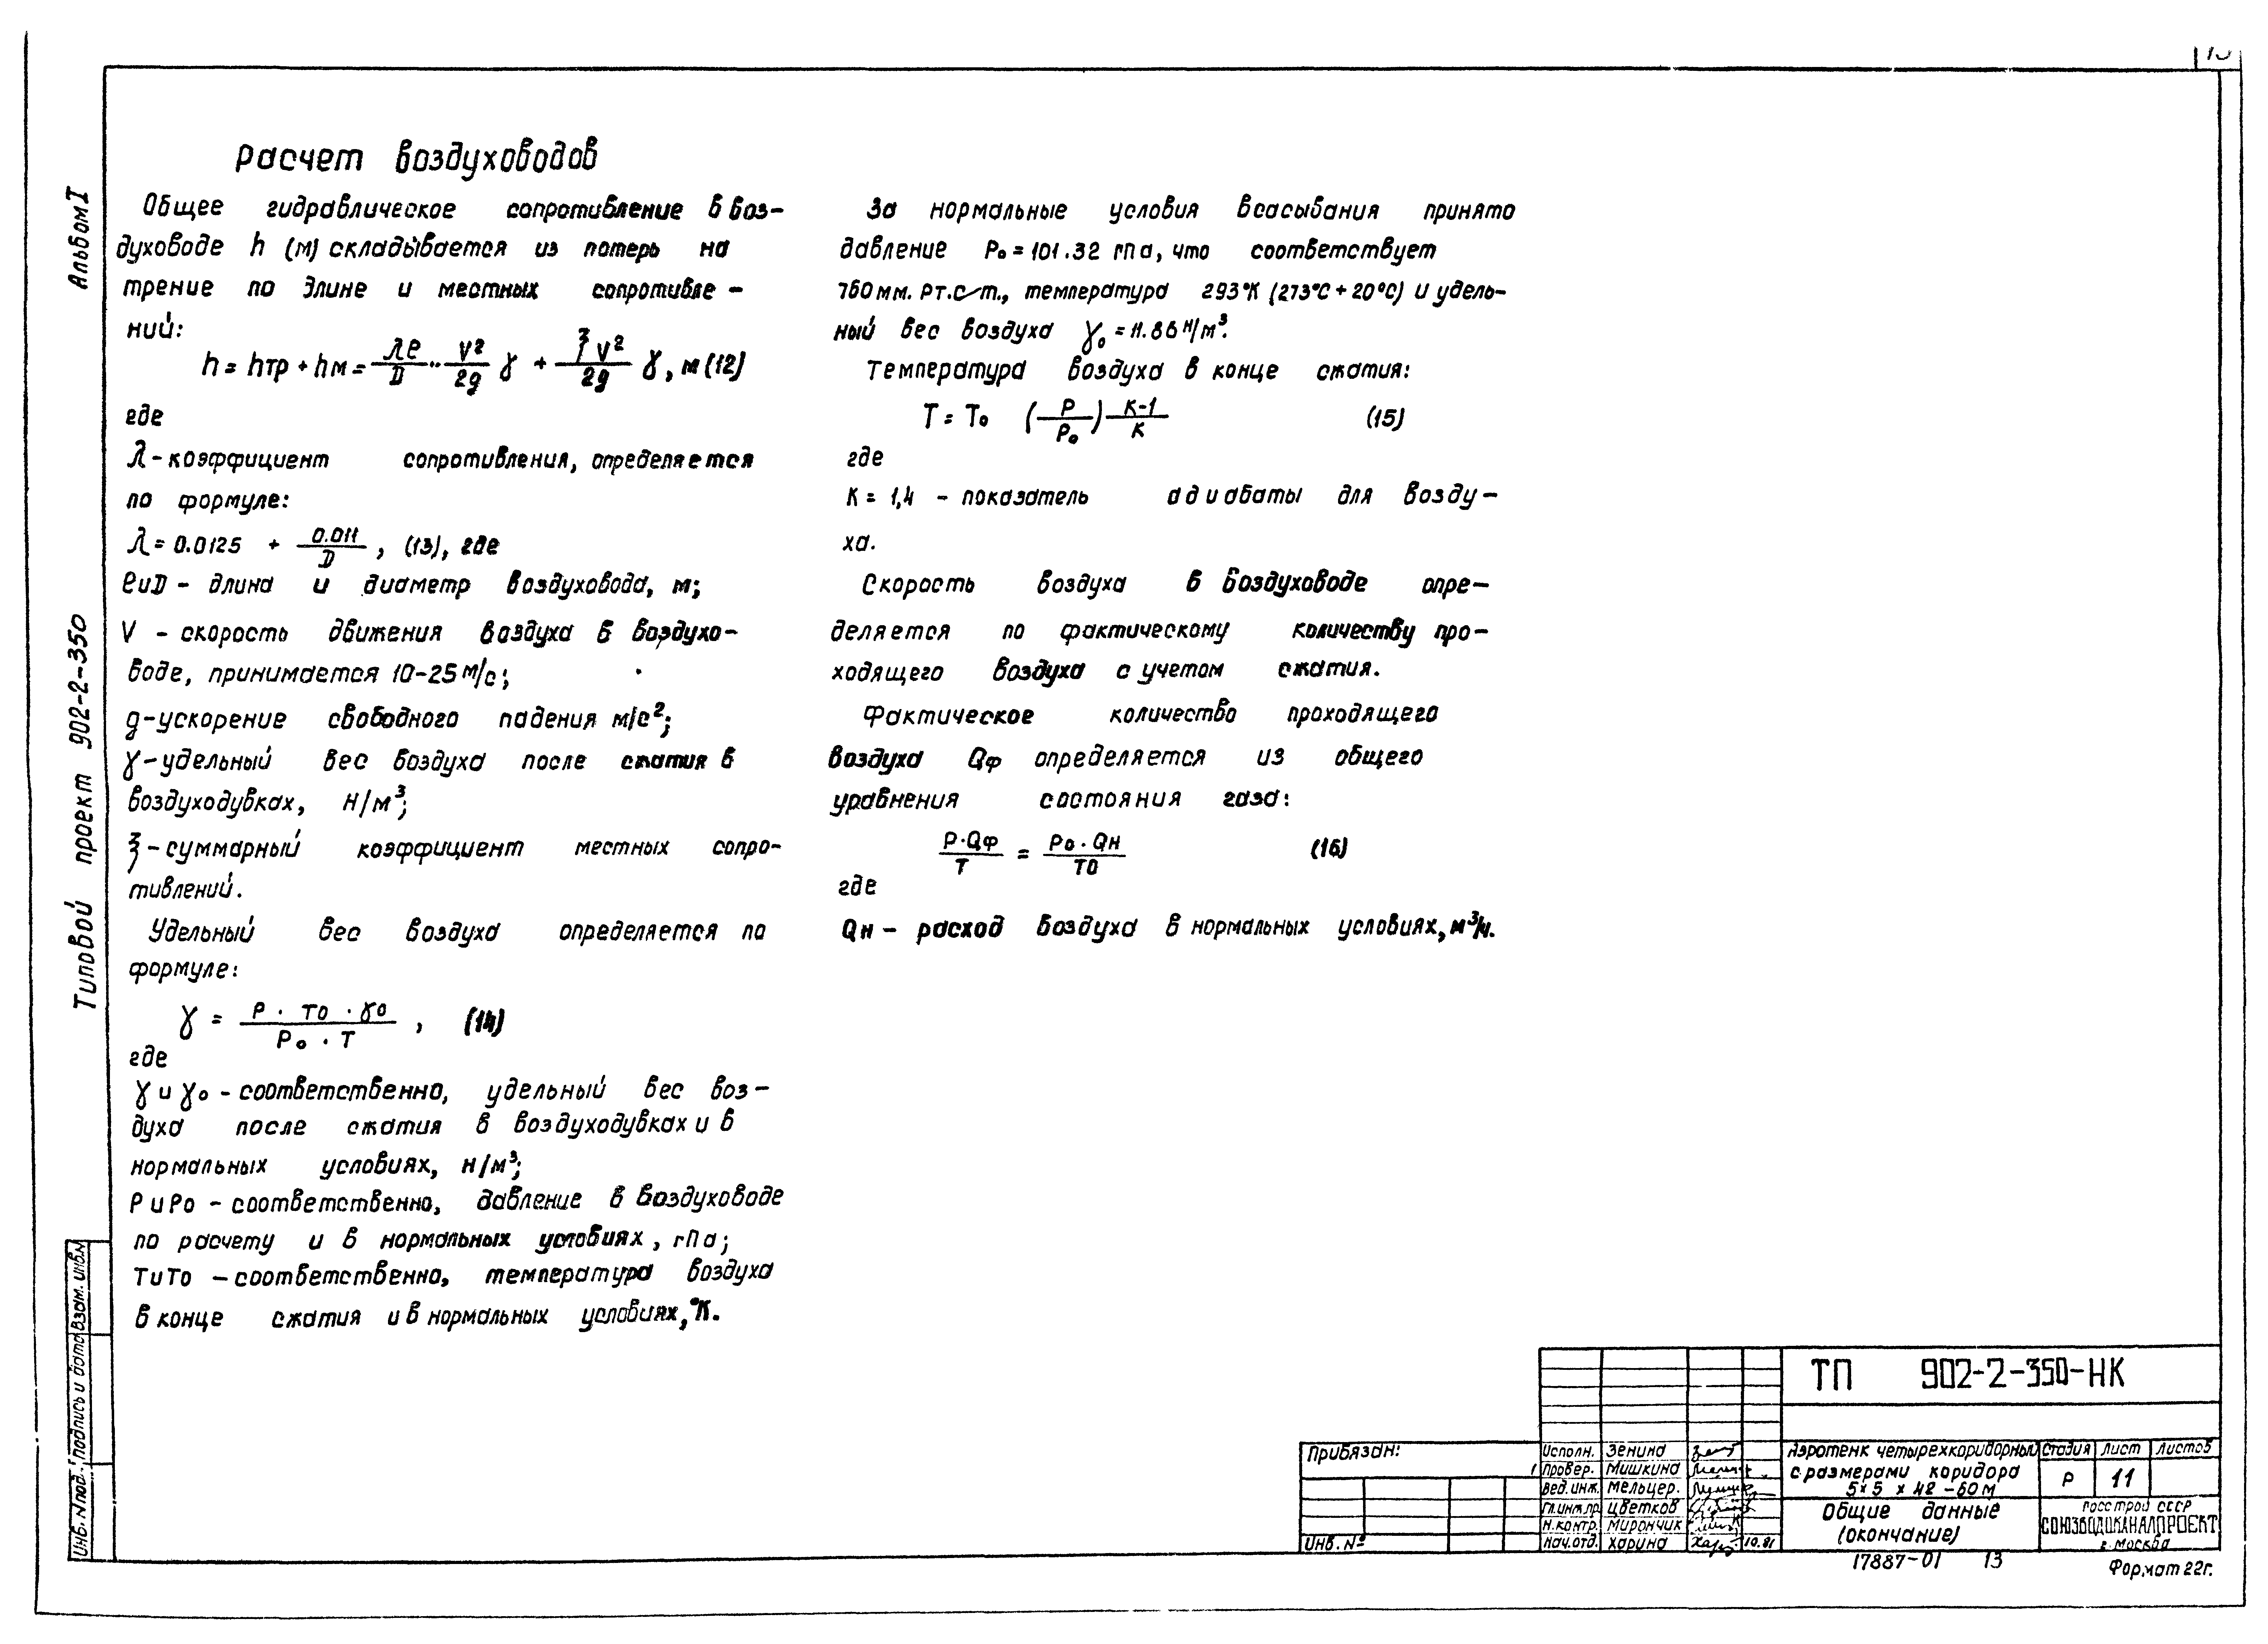 13
Альбом I
Типовой проект 902-2-350
Расчет воздуховодов
Общее гидравлическое сопротивление в воз-
духоводе h (м) складывается из потерь на
трение по длине и местных сопротивле-
ний:
h = hтр + hм = λℓ/D · v²/2g γ + ξv²/2g γ, м (12)
где
λ - коэффициент сопротивления, определяется
по формуле:
λ = 0.0125 + 0.011/D , (13), где
ℓ и D - длина и диаметр воздуховода, м;
V - скорость движения воздуха в воздухо-
воде, принимается 10-25 м/с;
g - ускорение свободного падения м/с²;
γ - удельный вес воздуха после сжатия в
воздуходувках, н/м³;
ξ - суммарный коэффициент местных сопро-
тивлений.
Удельный вес воздуха определяется по
формуле:
γ = P · To · γo / Po · T , (14)
где
γ и γo - соответственно, удельный вес воз-
духа после сжатия в воздуходувках и в
нормальных условиях, н/м³;
P и Po - соответственно, давление в воздуховоде
по расчету и в нормальных условиях, гПа;
T и To - соответственно, температура воздуха
в конце сжатия и в нормальных условиях, °К.
За нормальные условия всасывания принято
давление Po = 101.32 гПа, что соответствует
760 мм. рт. ст., температура 293°К (273°С + 20°С) и удель-
ный вес воздуха γo = 11.86 н/м³.
Температура воздуха в конце сжатия:
T = To (P/Po) K-1/K (15)
где
К = 1,4 - показатель адиабаты для возду-
ха.
Скорость воздуха в воздуховоде опре-
деляется по фактическому количеству про-
ходящего воздуха с учетом сжатия.
Фактическое количество проходящего
воздуха Qф определяется из общего
уравнения состояния газа:
P·Qф/T = Po·Qн/To (16)
где
Qн - расход воздуха в нормальных условиях, м³/ч.
Взам. инв.№
Подпись и дата
Инв. № под.
Привязан:
Инв. №
Исполн. Зенина
Провер. Мишкина
Вед.инж. Мельцер.
Гл.инж.пр. Цветков
Н.контр. Мирончик
Нач.отд. Харина 10.81
ТП 902-2-350-НК
Аэротенк четырехкоридорный
с размерами коридора
5×5×42-60м
Стадия Лист Листов
Р 11
Общие данные
(окончание)
Госстрой СССР
СОЮЗВОДОКАНАЛПРОЕКТ
г. Москва
17887-01 13
Формат 22г.